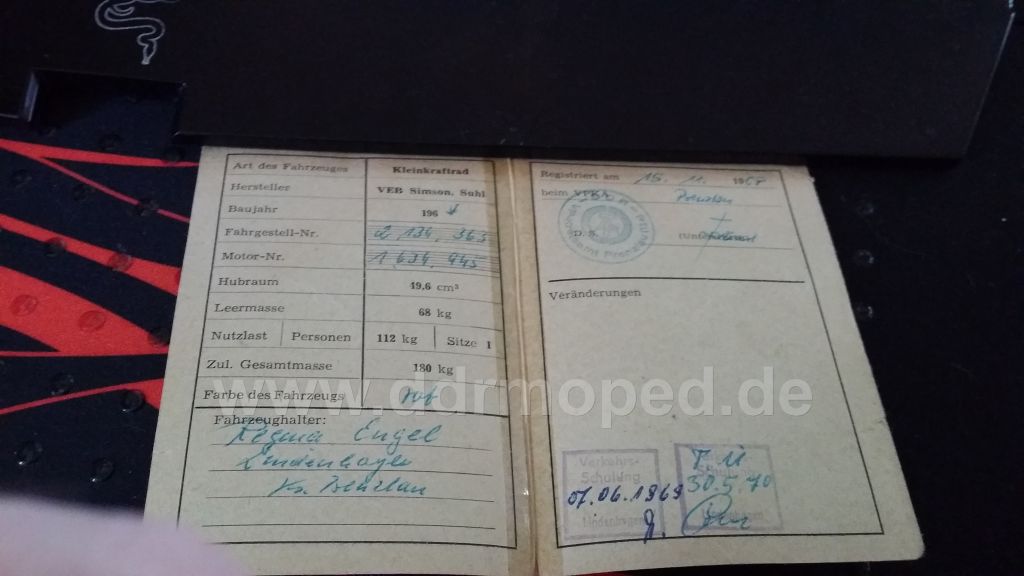 Art des Fahrzeuges Kleinkraftrad
Hersteller VEB Simson, Suhl
Baujahr 196
Fahrgestell-Nr. 2 134 363
Motor-Nr. 1 634 445
Hubraum 49,6 cm³
Leermasse 68 kg
Nutzlast Personen 112 kg Sitze 1
Zul. Gesamtmasse 180 kg
Farbe des Fahrzeugs rot
Fahrzeughalter:
Regina Engel
Lindenhagen
Kr. Prenzlau
Registriert am 15. 11. 1968
beim VPKA Prenzlau
D. S.
Veränderungen
Verkehrs-
Schulung
07.06.1969
Lindenhagen
T. U
30.5.70
www.ddrmoped.de